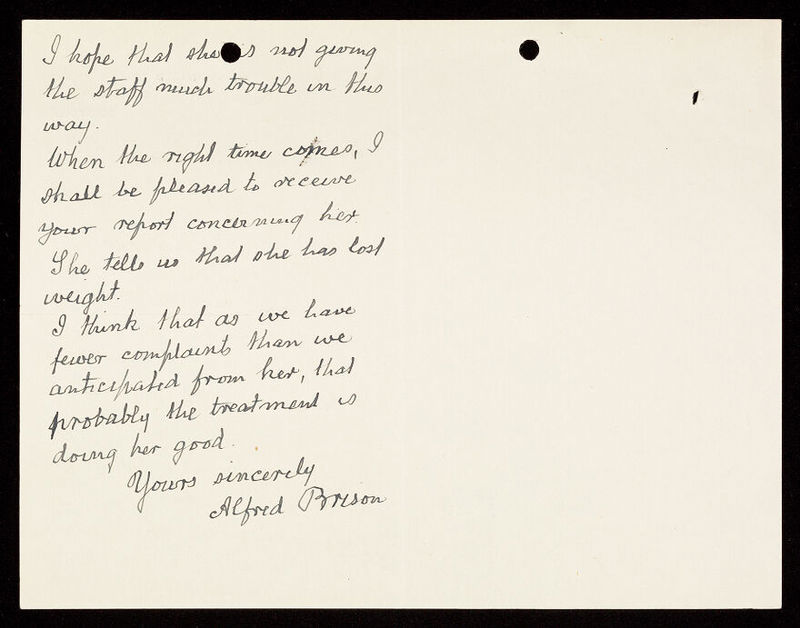 I hope that she is not giving
the staff much trouble in this
way.
When the right time comes, I
shall be pleased to receive
your report concerning her.
She tells us that she has lost
weight.
I think that as we have
fewer complaints than we
anticipated from her, that
probably the treatment is
doing her good.
Yours sincerely
Alfred Brison